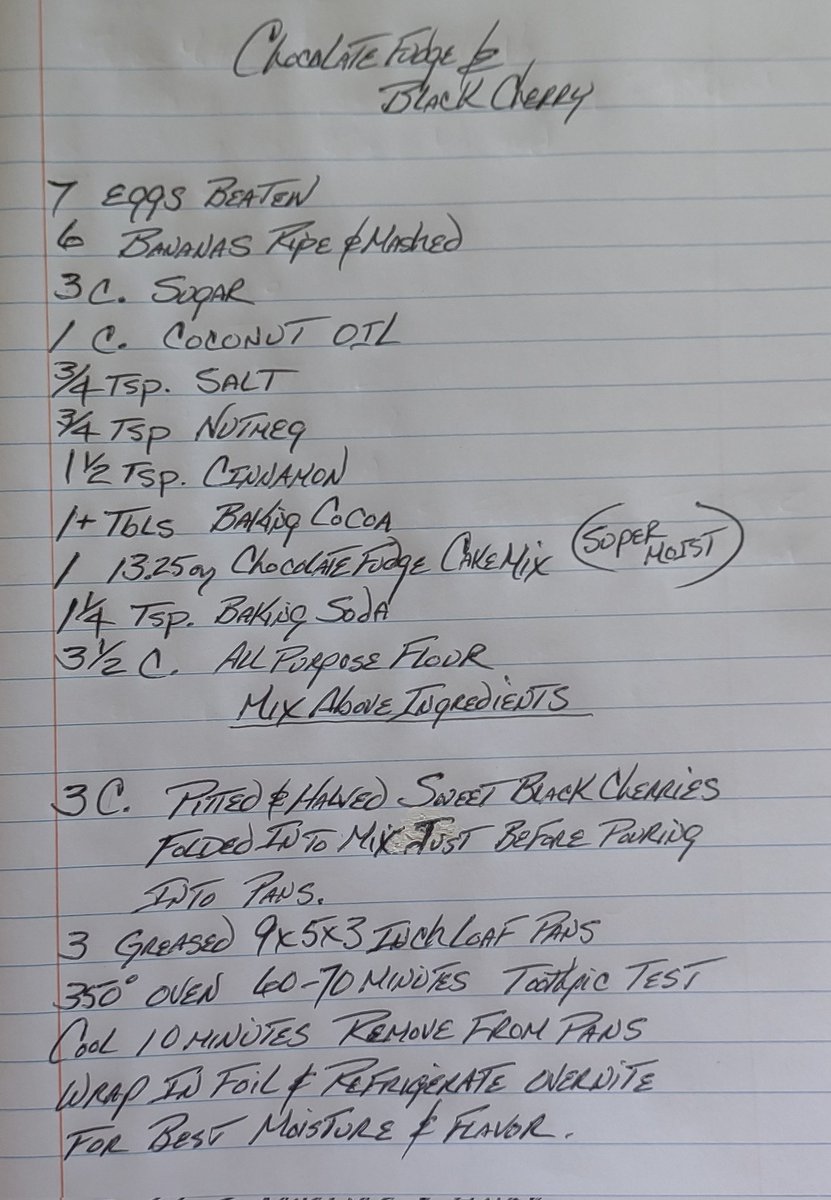 Chocolate Fudge &
Black Cherry
7 Eggs Beaten
6 Bananas Ripe & Mashed
3 C. Sugar
1 C. Coconut Oil
3/4 Tsp. Salt
3/4 Tsp Nutmeg
1 1/2 Tsp. Cinnamon
1+ Tbls Baking Cocoa
1 13.25 oz Chocolate Fudge Cake Mix (Super Moist)
1 1/4 Tsp. Baking Soda
3 1/2 C. All Purpose Flour
Mix Above Ingredients
3 C. Pitted & Halved Sweet Black Cherries
Folded Into Mix Just Before Pouring
Into Pans.
3 Greased 9x5x3 Inch Loaf Pans
350° Oven 60-70 Minutes Toothpic Test
Cool 10 Minutes Remove From Pans
Wrap In Foil & Refrigerate Overnite
For Best Moisture & Flavor.